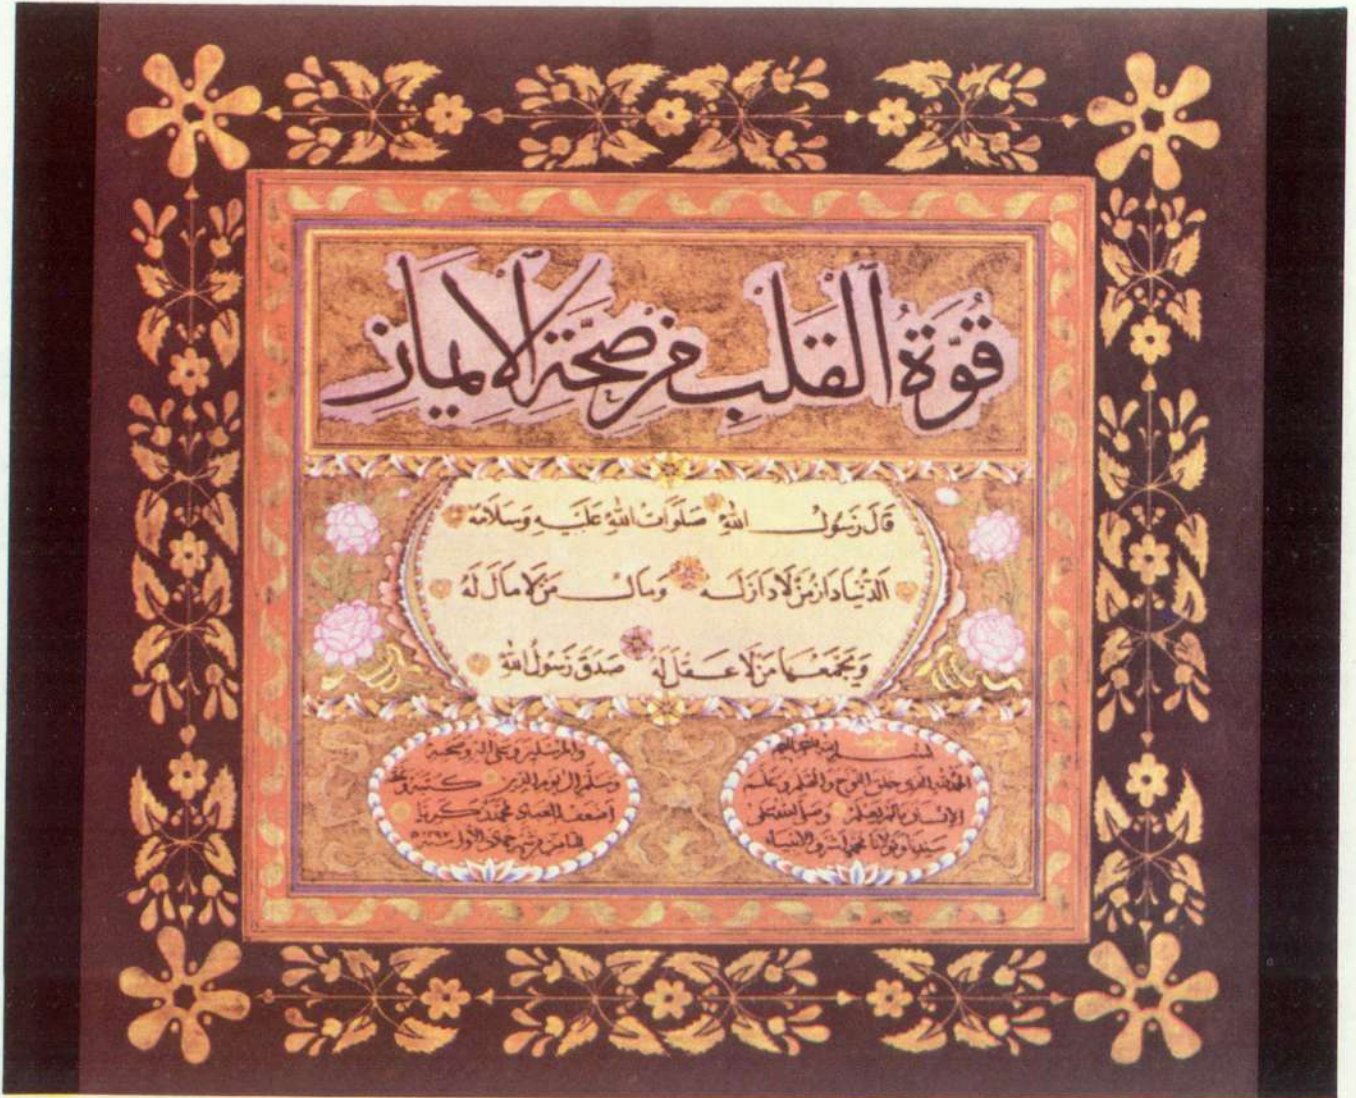 قُوَّةُ ٱلْقَلْبِ مِنْ صِحَّةِ ٱلْإِيمَانِ
قَالَ رَسُولُ اللهِ صَلَوَاتُ اللهِ عَلَيْهِ وَسَلَامُهُ
اَلدُّنْيَا دَارُ مَنْ لَا دَارَ لَهُ وَمَالُ مَنْ لَا مَالَ لَهُ
وَيَجْمَعُهَا مَنْ لَا عَقْلَ لَهُ صَدَقَ رَسُولُ اللهِ
بسم الله الرحمن الرحيم
الحمد لله الذي خلق اللوح والقلم وعلم
الإنسان ما لم يعلم وصلى الله على
سيدنا ومولانا محمد أشرف الأنبياء
والمرسلين وعلى آله وصحبه
وسلم إلى يوم الدين كتبه
أضعف العباد محمد زكريا
الأولى سنة